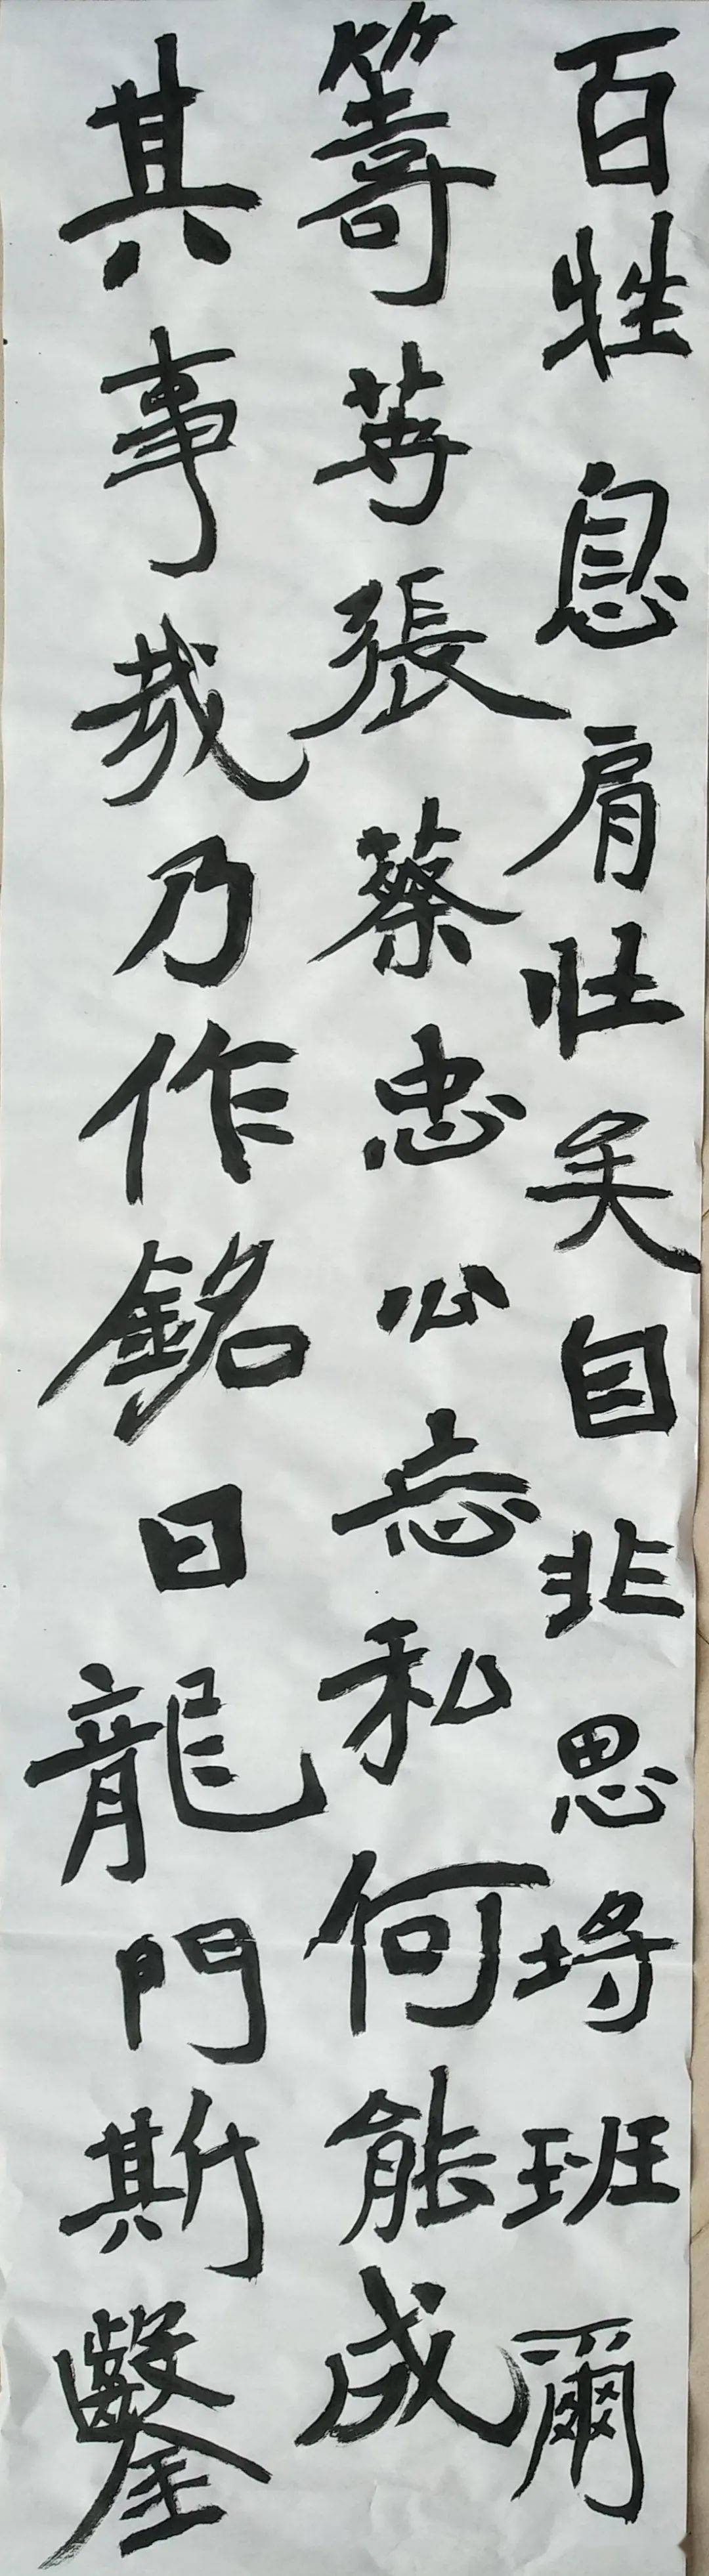 百牲息肩壯矣自非思埒班爾
籌等張蔡忠公忘私何能成
其事哉乃作銘曰龍門斯鑿